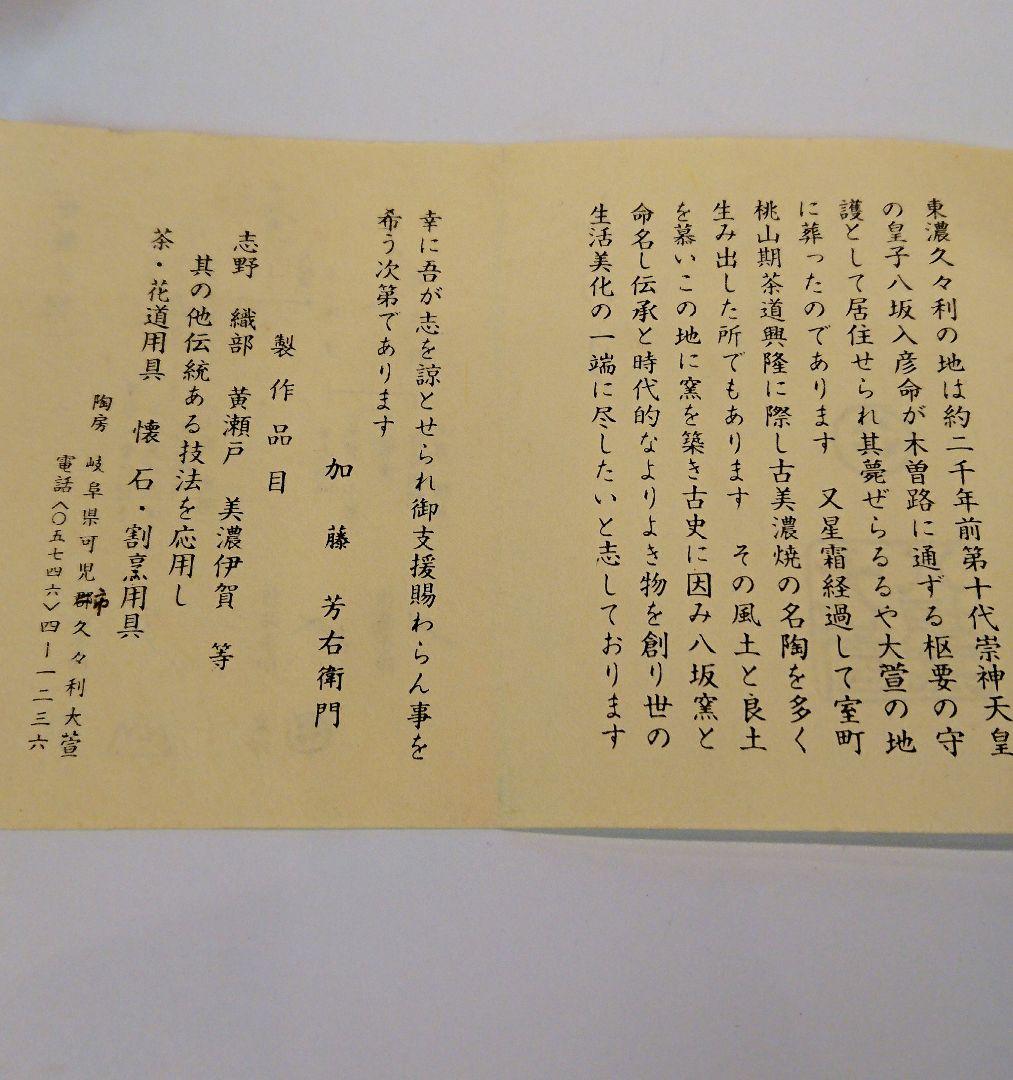 東濃久々利の地は約二千年前第十代崇神天皇
の皇子八坂入彦命が木曽路に通ずる枢要の守
護として居住せられ其薨ぜらるるや大萱の地
に葬ったのであります　又星霜経過して室町
桃山期茶道興隆に際し古美濃焼の名陶を多く
生み出した所でもあります　その風土と良土
を慕いこの地に窯を築き古史に因み八坂窯と
命名し伝承と時代的なよりよき物を創り世の
生活美化の一端に尽したいと志しております
幸に吾が志を諒とせられ御支援賜わらん事を
希う次第であります
加藤芳右衛門
製作品目
志野　織部　黄瀬戸　美濃伊賀　等
其の他伝統ある技法を応用し
茶・花道用具　懐石・割烹用具
陶房　岐阜県可児郡市久々利大萱
電話〈〇五七四六〉四ー一二三六